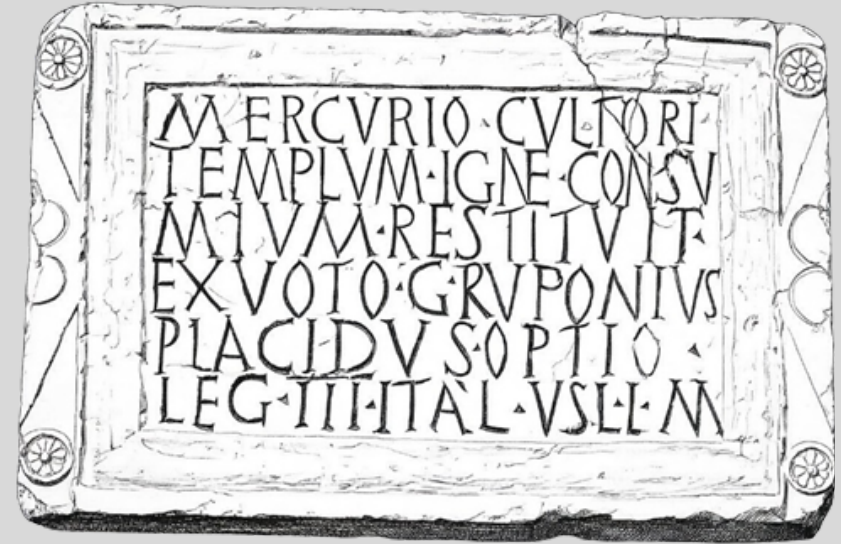 MERCVRIO · CVLTORI
TEMPLVM · IGNE · CONSV
MIVM · RESTITVIT ·
EX VOTO · G · RVPONIVS
PLACIDVS · OPTIO ·
LEG · III · ITAL · VSL · L · M